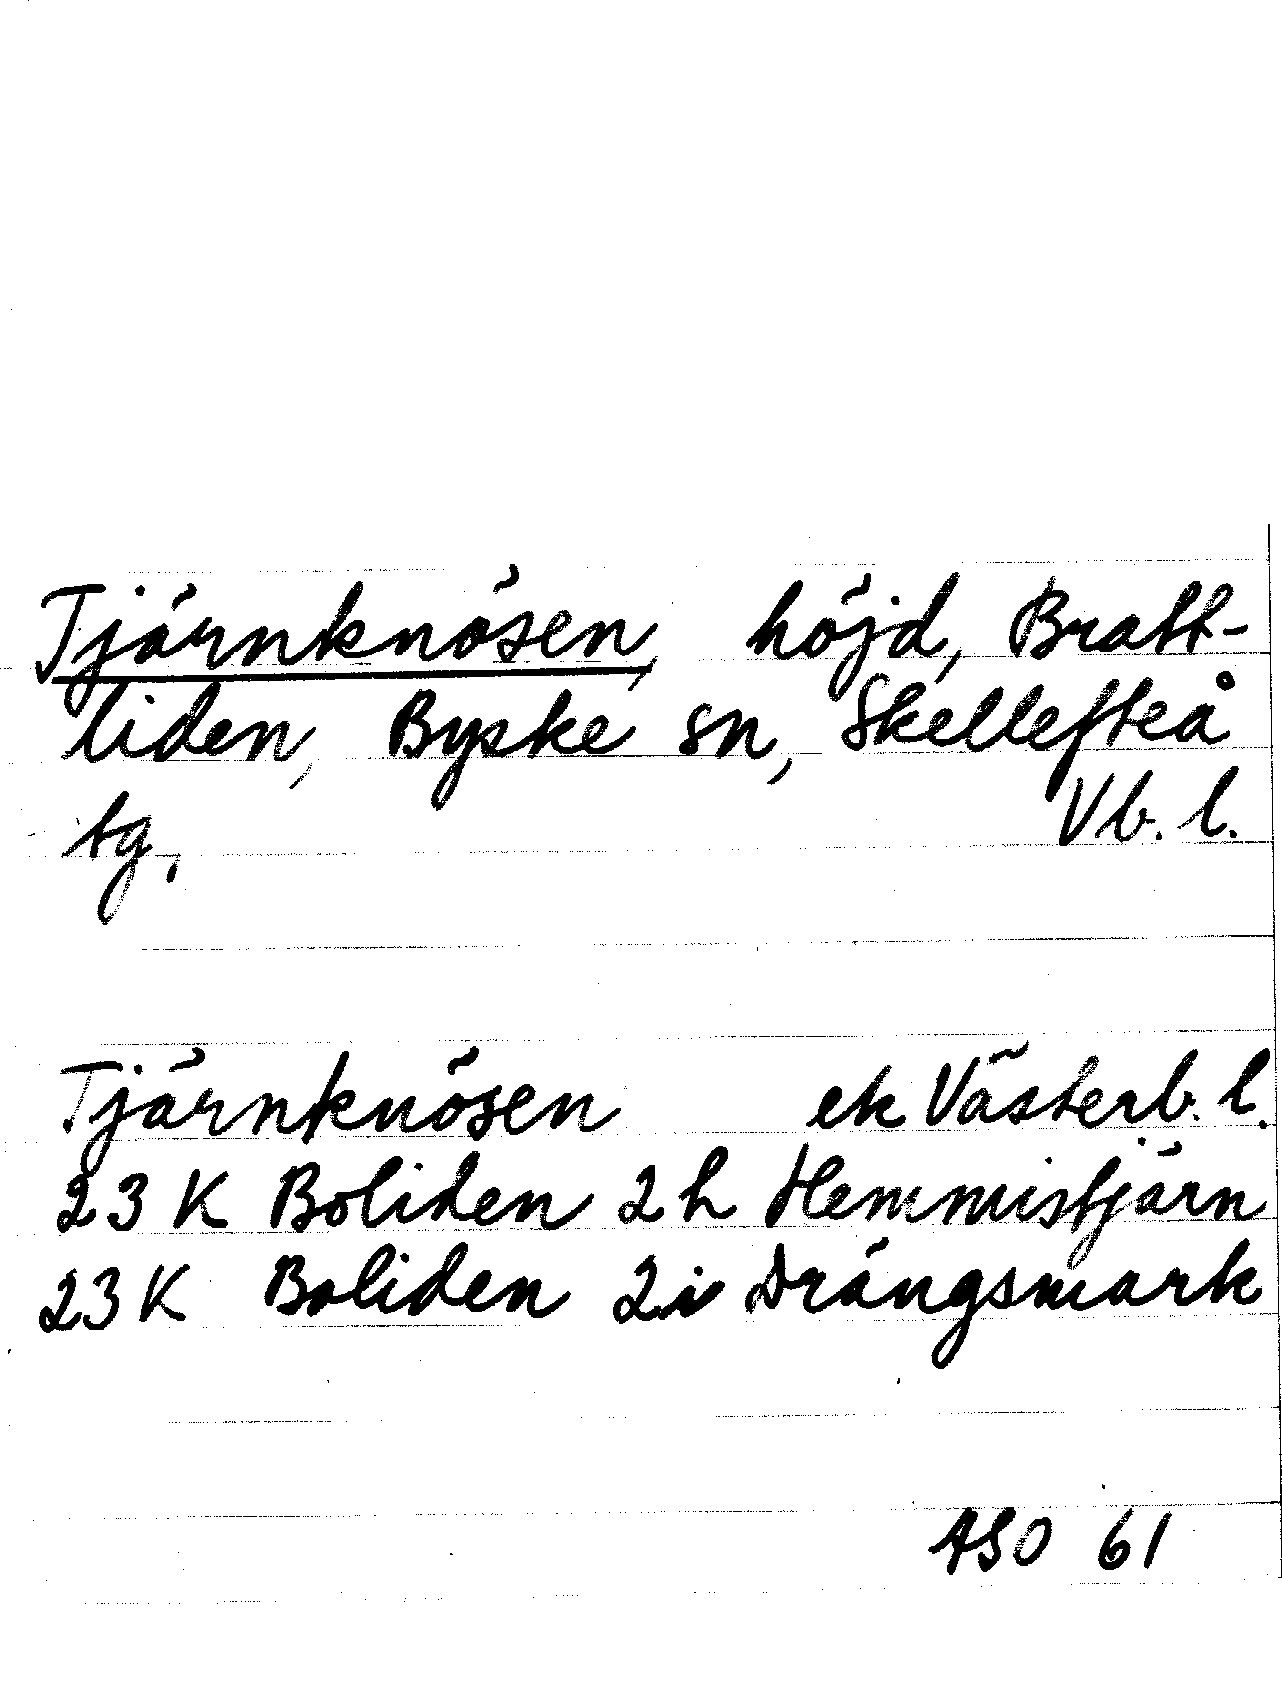 Tjärnknösen, höjd, Bratt-
liden, Byske sn, Skellefteå
tg, Vb. l.
Tjärnknösen ek Västerb. l.
23 K Boliden 2 h Hemmistjärn
23 K Boliden 2i Drängsmark
ASO 61